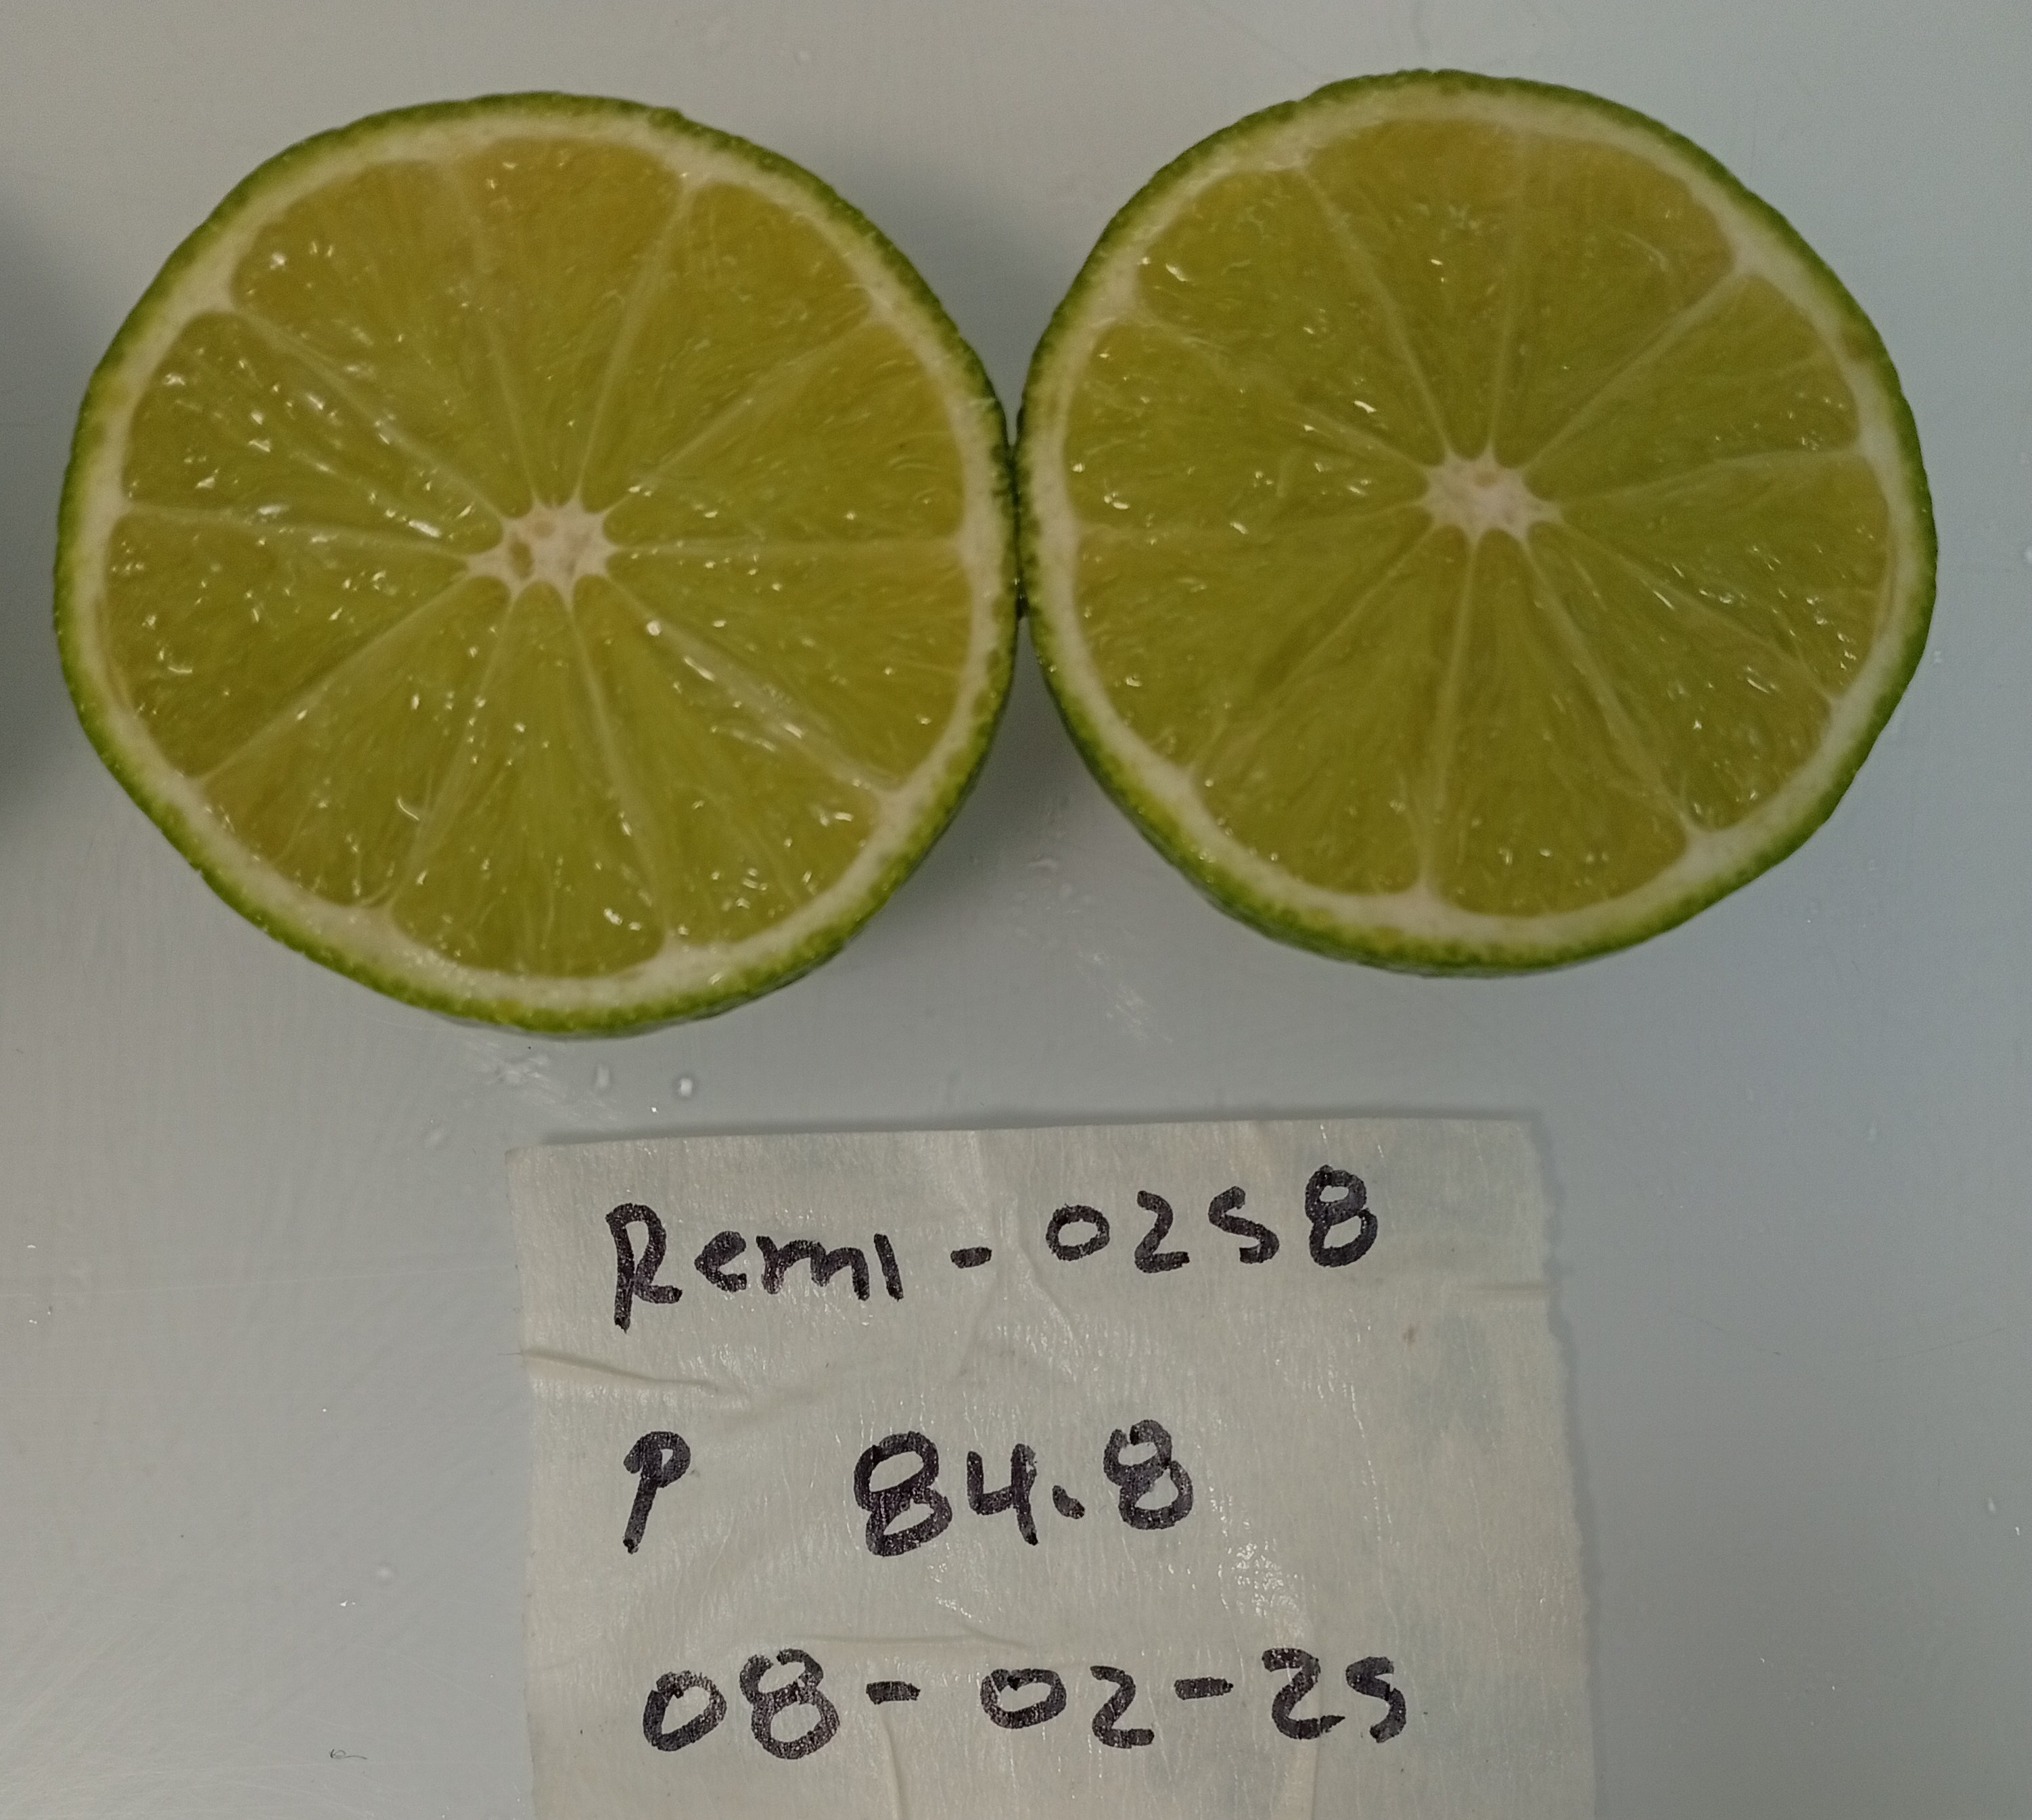 Remi - 0258
P 84.8
08-02-25